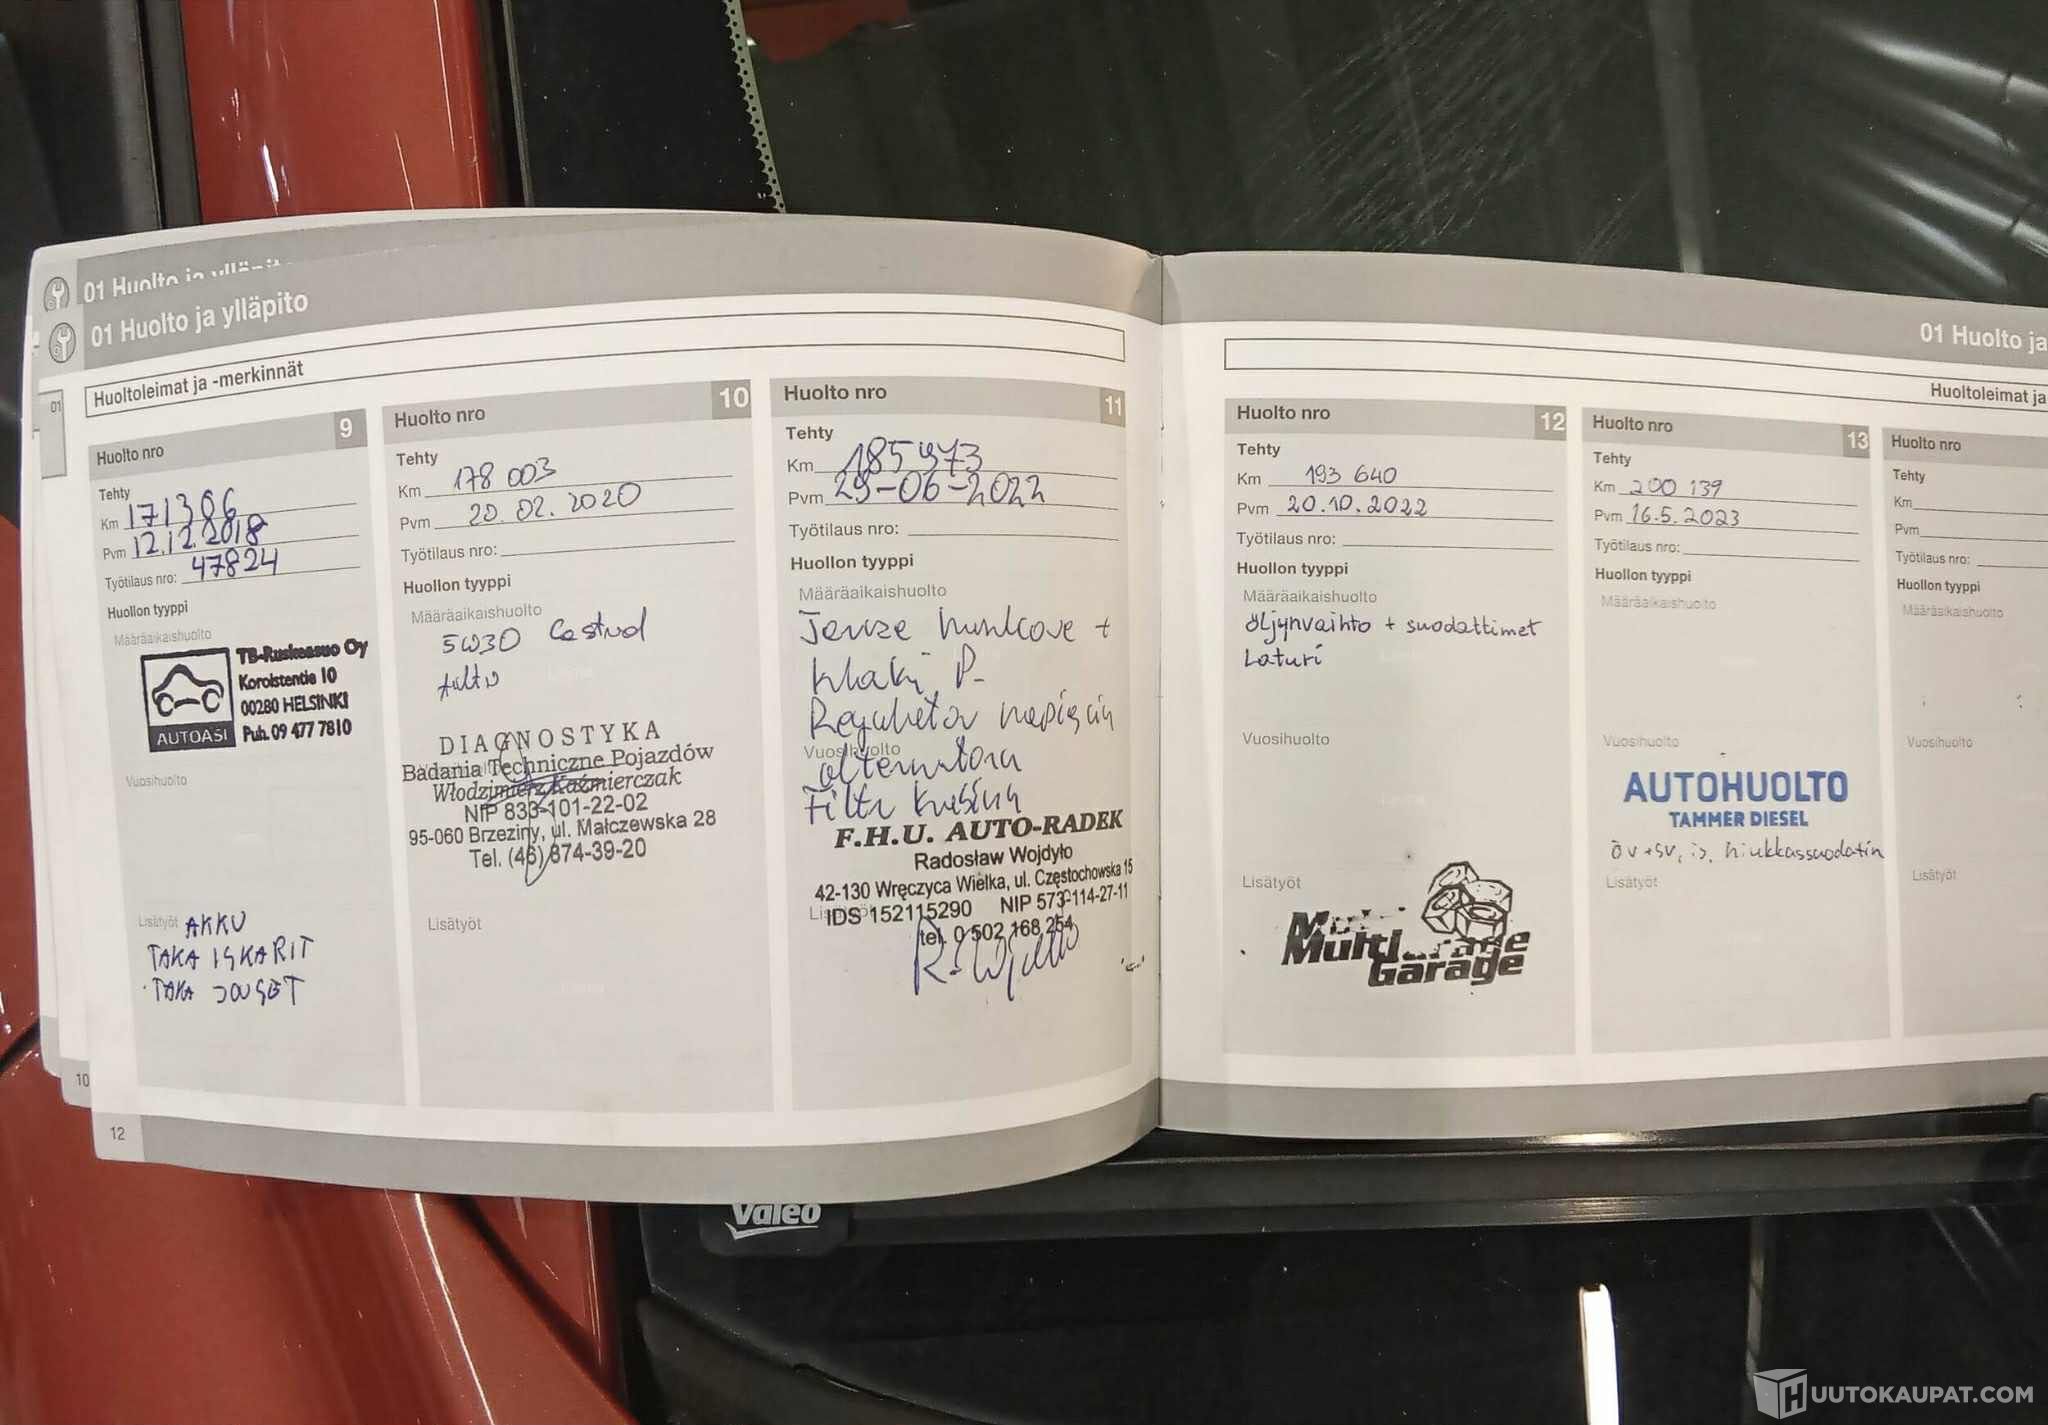 01 Huolto ja ylläpito
01 Huolto ja ylläpito
01
Huoltoleimat ja -merkinnät
Huolto nro 9
Tehty
Km 171306
Pvm 12.12.2018
Työtilaus nro: 47824
Huollon tyyppi
Määräaikaishuolto
TB-Ruskeasuo Oy
Korolstentie 10
00280 HELSINKI
Puh. 09 477 7810
AUTOASI
Vuosihuolto
Lisätyöt AKKU
TAKA ISKARIT
TAKA JOUSET
Huolto nro 10
Tehty
Km 178 003
Pvm 20.02.2020
Työtilaus nro:
Huollon tyyppi
Määräaikaishuolto
5W30 Castrol
DIAGNOSTYKA
Badania Techniczne Pojazdów
Włodzimierz Kaźmierczak
NIP 833-101-22-02
95-060 Brzeziny, ul. Małczewska 28
Tel. (46) 874-39-20
Lisätyöt
Huolto nro 11
Tehty
Km 185973
Pvm 29-06-2022
Työtilaus nro:
Huollon tyyppi
Määräaikaishuolto
+
Klocki P.
Regulator napięcia
Vuosihuolto
alternatora
Filtr kabiny
F.H.U. AUTO-RADEK
Radosław Wojdyło
42-130 Wręczyca Wielka, ul. Częstochowska 15
Lisätyöt
IDS 152115290 NIP 573-114-27-11
tel. 0 502 168 254
10
12
01 Huolto ja
Huoltoleimat ja
Huolto nro 12
Tehty
Km 193 640
Pvm 20.10.2022
Työtilaus nro:
Huollon tyyppi
Määräaikaishuolto
Öljynvaihto + suodattimet
Laturi
Vuosihuolto
Lisätyöt
Multi
Garage
Huolto nro 13
Tehty
Km 200 139
Pvm 16.5.2023
Työtilaus nro:
Huollon tyyppi
Määräaikaishuolto
Vuosihuolto
AUTOHUOLTO
TAMMER DIESEL
öv+sv, is, hiukkassuodatin
Lisätyöt
Huolto nro
Tehty
Km
Pvm
Työtilaus nro:
Huollon tyyppi
Määräaikaishuolto
Vuosihuolto
Lisätyöt
Valeo
HUUTOKAUPAT.COM